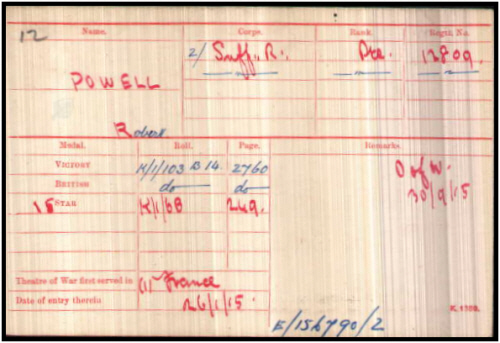 12
Name. Corps. Rank. Regtl. No.
2/ Suff. R. Pte. 12809.
POWELL
Robert
Medal. Roll. Page. Remarks.
VICTORY K/1/103 B 14. 2760 D of W.
BRITISH do do 30/9/15
15 STAR K/1/68 249.
Theatre of War first served in (1) France
Date of entry therein 26/1/15.
K. 1380.
E/15b790/2